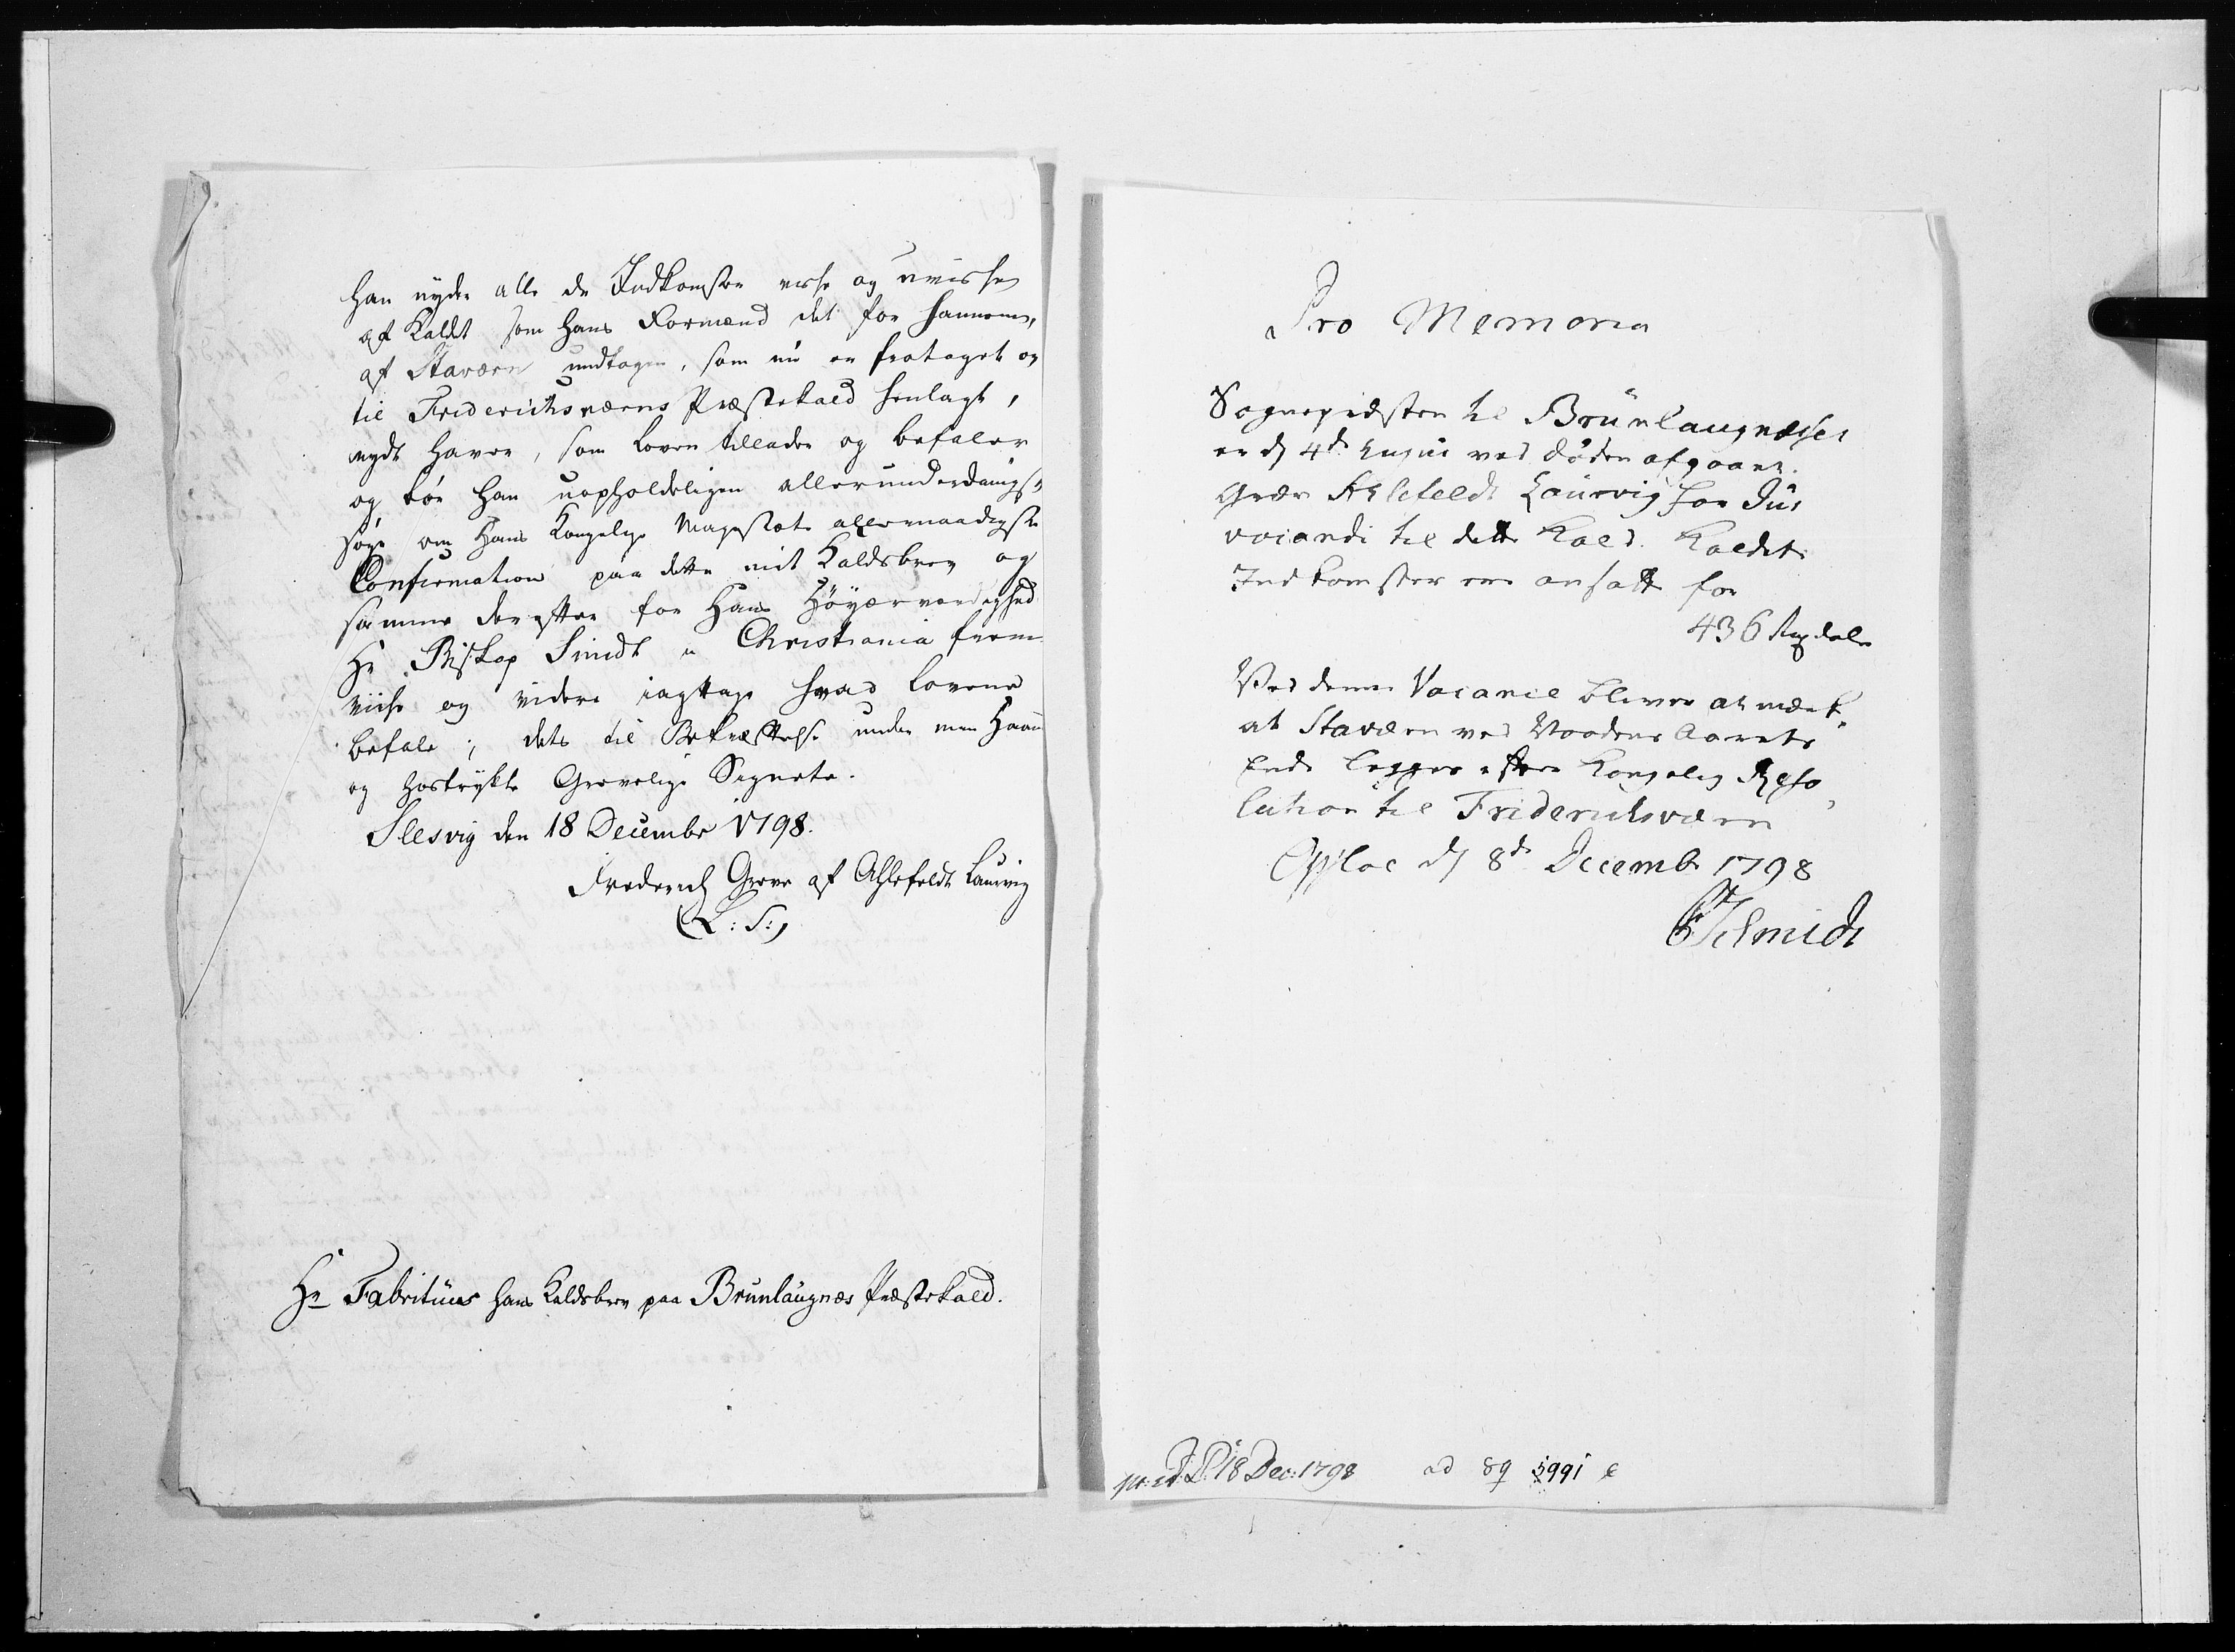 han nyder alle de Indkomster visse og uvisse
af Kaldet som hans Formænd det for hannem,
af Staværn undtagen, som nu er frataget og
til Friderichsværns Præstekald henlagt,
nydt haver, som Loven tillader og befaler
og bør han uopholdeligen allerunderdanigst
søge om Hans Kongelige Majestæts allernaadigste
Confirmation paa dette mit Kaldsbrev og
samme derefter for Hans Höyærværdighed
Hr Biskop Smidt i Christiania frem
viise og videre iagttage hvad Lovene
befale; dets til Bekræftelse under min Haand
og hostrykte Grevelige Signete.
Slesvig den 18 Decembr 1798.
Frederich Greve af Ahlefeldt Laurvig
(L: S:)
Hr Fabritius hans Kaldsbrev paa Brunlaugnæs Præstekald.
Pro Memoria
Sognepræsten til Brünlaugnæsset
er d 4de ved Døden afgaaet.
Grev Ahlefeldt Laurvig har Jus
vocandi til dette Kald. Kaldets
Indkomster ere ansatte for
436 Rixdaler
Ved denne Vacance bliver at mærke
at Staværn ved Naadens Aarets
Ende lægges efter Kongelig Reso
lution til Friderichsværn
Opsloe d 8de Decembr 1798
Schmidt
pr: d: 18 Dec: 1798 ad 89 1991 e